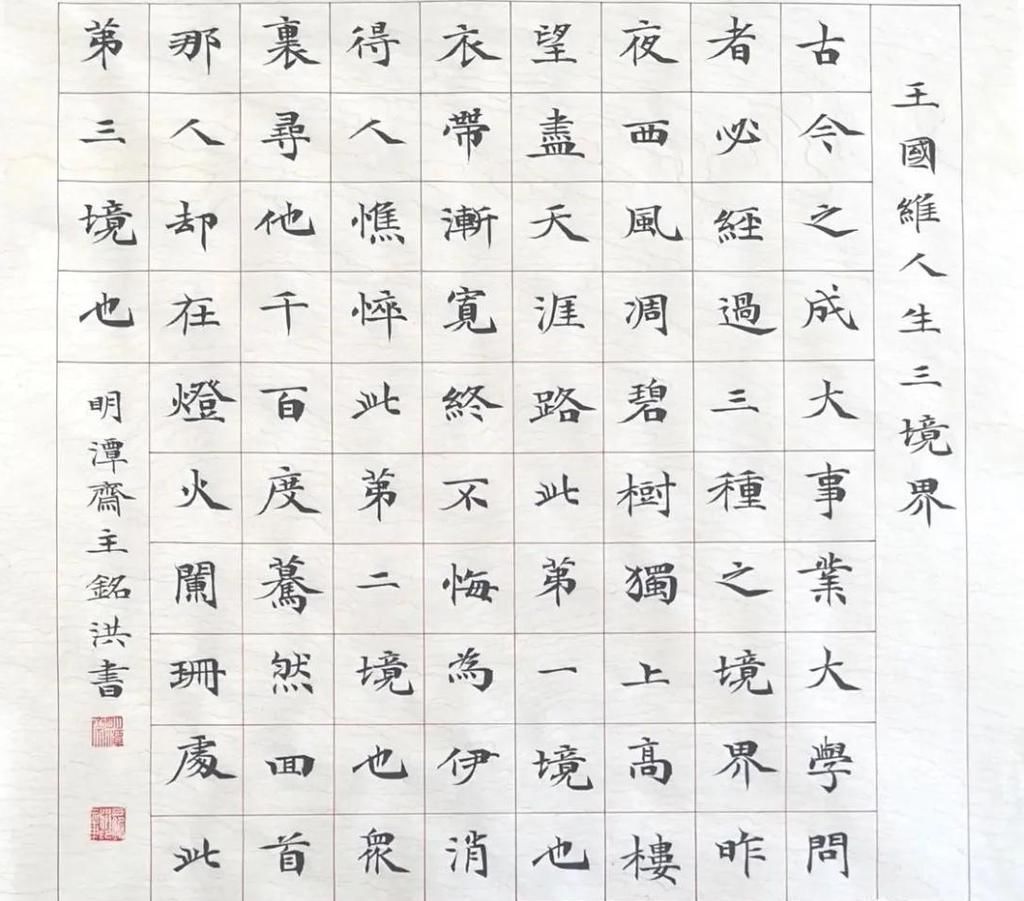 王國維人生三境界
古今之成大事業大學問
者必經過三種之境界昨
夜西風凋碧樹獨上高樓
望盡天涯路此第一境也
衣帶漸寬終不悔為伊消
得人憔悴此第二境也眾
裏尋他千百度驀然囬首
那人却在燈火闌珊處此
第三境也
明潭齋主銘洪書